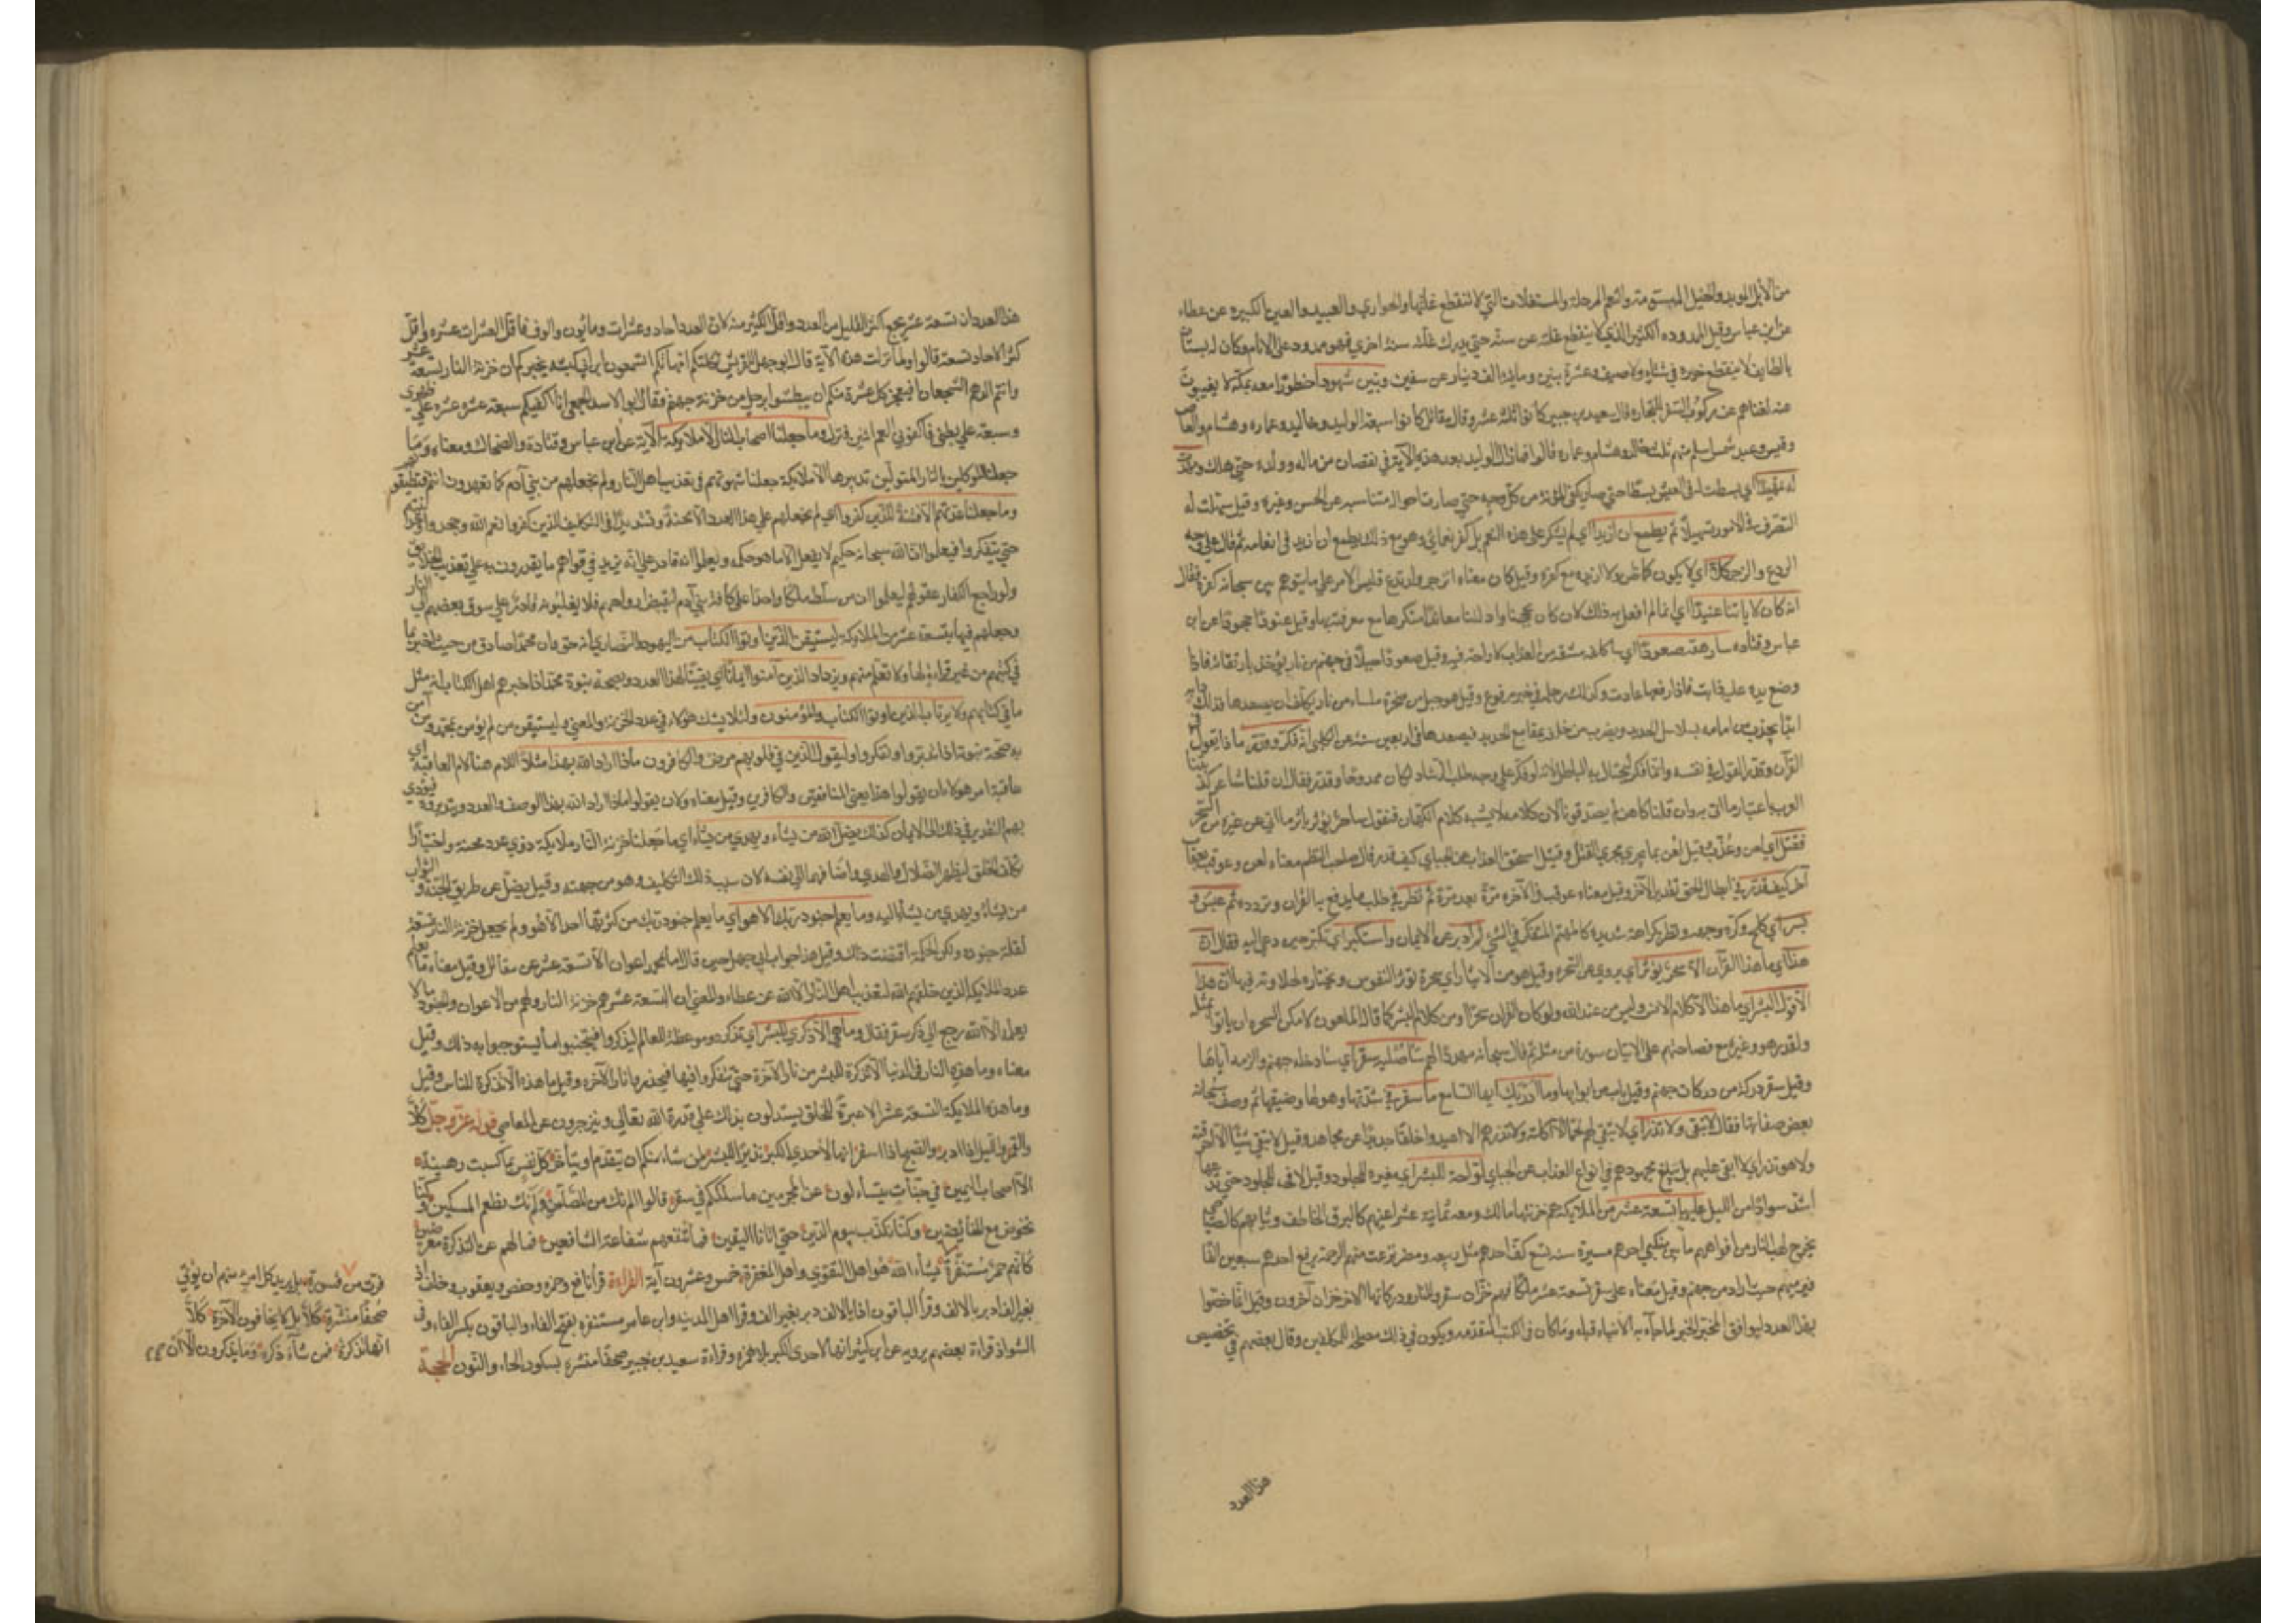 من الابل الموبلة والخيل المسومة والنعم المرحلة والمستغلات التي لا تنقطع غلتها والجواري والعبيد والعين الكثيرة عن عطاء
عن ابن عباس وقيل الممدود الكثير الذي لا ينقطع غلته عن سنة حتى يدرك غلة سنة اخرى فهو ممدود على الايام وكان له بستان
بالطايف لا ينقطع خيره في شتاء ولا صيف وعشرة بنين وماية الف دينار عن سفين وبنين شهودا حضورا معه بمكة لا يغيبون
عنه لغناهم عن ركوب السفر للتجارة قال سعيد بن جبير كانوا ثلثة عشر وقال مقاتل كانوا سبعة الوليد وخالد وعمارة وهشام والعاص
وقيس وعبد شمس اسلم منهم ثلثة خالد وهشام وعمارة قالوا فما زال الوليد بعد هذه الآية في نقصان من ماله وولده حتى هلك ومهدت
له تمهيدا اي بسطت له في العيش بسطا حتى صار مكفي المؤنة من كل وجه حتى صارت احواله متناسبة عن الحسن وغيره وقيل سهلت له
التصرف في الامور تسهيلا ثم يطمع ان ازيد اي لم يشكرني على هذه النعم بل كفر نعمائي وهو مع ذلك يطمع ان ازيد في انعامه ثم قال على وجه
الردع والزجر كلا اي لا يكون كما ظن ولا ازيده مع كفره وقيل كان معناه انزجر وارتدع فليس الامر على ما يتوهم بين سبحانه كفره فقال
انه كان لآياتنا عنيدا اي انما لم افعل به ذلك لانه كان بحججنا وادلتنا معاندا منكرها مع معرفته بها وقيل عنودا جحودا عن ابن
عباس وقتادة سارهقه صعودا اي ساكلفه مشقة من العذاب لا راحة فيه وقيل صعودا جبل في جهنم من نار يؤخذ بارتقائه فاذا
وضع يده عليه ذابت فاذا رفعها عادت وكذلك رجله في خبر مرفوع وقيل هو جبل من صخرة ملساء من نار يكلف ان يصعدها فذلك دابه
ابدا يجذب من امامه بسلاسل الحديد ويضرب من خلفه بمقامع الحديد فيصعدها في اربعين سنة عن الكلبي انه فكر وقدر ماذا يقول في
القرآن وقدر القول في نفسه وانما فكر ليحتال به للباطل لانه لو فكر على وجه طلب الرشاد لكان ممدوحا وقدر فقال ان قلنا شاعر كذبتنا
العرب باعتبار ما اتى به وان قلنا كاهن لم يصدقونا لان كلامه لا يشبه كلام الكهان فنقول ساحر يؤثر ما اتى به عن غيره من السحرة
فقتل اي لعن وعذب وقيل لعن بما يجري مجرى القتل وقيل استحق العذاب عن الجبائي كيف قدر قال صاحب النظم معناه لعن وعوقب بعقاب
آخر كيف قدر في ابطال الحق تقديرا آخر وقيل معناه عوقب في الآخرة مرة بعد مرة ثم نظر في طلب ما يدفع به القرآن ويرده ثم عبس و
بسر اي كلح وكره وجهه ونظر بكراهة شديدة كالمهتم المتفكر في الشيء ثم ادبر عن الايمان واستكبر اي تكبر حين دعي اليه فقال ان
هذا اي ما هذا القرآن الا سحر يؤثر اي يروى عن السحرة وقيل هو من الايثار اي سحرة تؤثره النفوس وتختاره لحلاوته فيها ان هذا
الا قول البشر اي ما هذا الا كلام الانس وليس من عند الله ولو كان القرآن سحرا او من كلام البشر كما قاله الملعون لامكن السحرة ان ياتوا بمثله
ولقدر هو وغيره مع فصاحتهم على الاتيان سورة من مثله ثم قال سبحانه مهددا له ساصليه سقر اي سادخله جهنم والزمه اياها
وقيل سقر دركة من دركات جهنم وقيل باب من ابوابها وما ادريك ايها السامع ما سقر في شدتها وهولها وضيقها ثم وصف سبحانه
بعض صفاتها فقال لا تبقي ولا تذر اي لا تبقي لهم لحما الا اكلته ولا تذرهم اذا اعيدوا خلقا جديدا عن مجاهد وقيل لا تبقي شيئا الا احرقته
ولا هو تذر اي لا ابقى عليهم بل يبلغ مجهودهم في انواع العذاب عن الجبائي لواحة للبشر اي مغيرة للجلود وقيل لافحة للجلود حتى تدعها
اشد سوادا من الليل عليها تسعة عشر من الملائكة هم خزنتها مالك ومعه ثمانية عشر اعينهم كالبرق الخاطف وانيابهم كالصياصي
يخرج لهب النار من افواههم ما بين منكبي احدهم مسيرة سنة تسع كف احدهم مثل ربيعة ومضر نزعت منهم الرحمة يرفع احدهم سبعين الفا
فيرميهم حيث اراد من جهنم وقيل معناه على سقر تسعة عشر ملكا فهم خزان سقر وللنار ودركاتها الاخر خزان آخرون وقيل انما خصوا
بهذا العدد ليوافق المخبر الخبر لما جاء به الانبياء قبله وما كان في الكتب المتقدمة ويكون في ذلك مصلحة للمكلفين وقال بعضهم في تخصيص
هذا العدد
هذا العدد ان تسعة عشر يجمع اكثر القليل من العدد واقل الكثير منه لان العدد آحاد وعشرات ومايون والوف فاقل العشرات عشرة واقل
كثر الاحاد تسعة قالوا ولما نزلت هذه الآية قال ابوجهل لقريش ثكلتكم امهاتكم اتسمعون ابن ابي كبشة يخبركم ان خزنة النار تسعة عشر
وانتم الدهم الشجعان افيعجز كل عشرة منكم ان يبطشوا برجل من خزنة جهنم فقال ابو الاسد الجمحي انا اكفيكم سبعة عشر عشرة على ظهري
وسبعة على بطني فاكفوني انتم اثنين فنزل وما جعلنا اصحاب النار الا ملائكة الآية عن ابن عباس وقتادة والضحاك ومعناه وما
جعلنا الموكلين بالنار المتولين تدبيرها الا ملائكة جعلنا شهوتهم في تعذيب اهل النار ولم نجعلهم من بني آدم كما تعهدون انتم فتطيقونهم
وما جعلنا عدتهم الا فتنة للذين كفروا اي لم نجعلهم على هذا العدد الا محنة وتشديدا في التكليف للذين كفروا نعم الله وجحدوا
حتى يتفكروا فيعلموا ان الله سبحانه حكيم لا يفعل الا ما هو حكمة ويعلموا انه قادر على انه يزيد في قواهم ما يقدرون به على تعذيب الخلائق
ولو راجع الكفار عقولهم ليعلموا ان من سلط ملكا واحدا على كافة بني آدم لقبض ارواحهم فلا يغلبونه قادر على سوق بعضهم الى النار
وجعلهم فيها بتسعة عشر من الملائكة ليستيقن الذين اوتوا الكتاب من اليهود والنصارى انه حق وان محمدا صادق من حيث اخبر بما
في كتبهم من غير قراءة لها ولا تعلم منهم ويزداد الذين آمنوا ايمانا اي يقينا بهذا العدد وبصحة نبوة محمد اذا اخبرهم اهل الكتاب انه مثل
ما في كتابهم ولا يرتاب الذين اوتوا الكتاب والمؤمنون ولئلا يشك هؤلاء في عدد الخزنة والمعنى وليستيقن من لم يؤمن بمحمد ومن آمن
به صحة نبوته اذا تدبروا وتفكروا وليقول الذين في قلوبهم مرض والكافرون ماذا اراد الله بهذا مثلا اللام هنا لام العاقبة اي
عاقبة امر هؤلاء ان يقولوا هذا يعني المنافقين والكافرين وقيل معناه ولان يقولوا ماذا اراد الله بهذا الوصف والعدد ويتدبروه فيؤدي
بهم التدبر في ذلك الى الايمان كذلك يضل الله من يشاء ويهدي من يشاء اي ما جعلنا خزنة النار ملائكة ذوي عدد محنة واختبارا
نكلف الخلق ليظهر الضلال والهدى واضافهما الى نفسه لان سبب ذلك التكليف وهو من جهته وقيل يضل عن طريق الجنة والثواب
من يشاء ويهدي من يشاء اليه وما يعلم جنود ربك الا هو اي ما يعلم جنود ربك من كثرتها احد الا هو ولم يجعل خزنة النار تسعة عشر
لقلة جنوده ولكن الحكمة اقتضت ذلك وقيل هذا جواب ابي جهل حين قال اما لمحمد اعوان الا تسعة عشر عن مقاتل وقيل معناه ما يعلم
عدد الملائكة الذين خلقهم الله لتعذيب اهل النار الا الله عن عطاء والمعنى ان التسعة عشر هم خزنة النار ولهم من الاعوان والجنود ما لا
يعلمه الا الله رجع الى ذكر سقر فقال وما هي الا ذكرى للبشر اي تذكرة وموعظة للعالم ليذكروا فيتجنبوا ما يستوجبوا به ذلك وقيل
معناه وما هذه النار في الدنيا الا تذكرة للبشر من نار الآخرة حتى يتفكروا فيها فيحذروا نار الآخرة وقيل ما هذه الا تذكرة للناس وقيل
وما هذه الملائكة التسعة عشر الا عبرة للخلق يستدلون بذلك على قدرة الله تعالى وينزجرون عن المعاصي قوله عز وجل كلا
والقمر والليل اذا ادبر والصبح اذا اسفر انها لاحدى الكبر نذيرا للبشر لمن شاء منكم ان يتقدم او يتأخر كل نفس بما كسبت رهينة
الا اصحاب اليمين في جنات يتساءلون عن المجرمين ما سلككم في سقر قالوا لم نك من المصلين ولم نك نطعم المسكين وكنا
نخوض مع الخائضين وكنا نكذب بيوم الدين حتى اتانا اليقين فما تنفعهم شفاعة الشافعين فما لهم عن التذكرة معرضين
كانهم حمر مستنفرة يشاء الله هو اهل التقوى واهل المغفرة خمس وعشرون آية القراءة قرأ نافع وحمزة وحفص ويعقوب وخلف اذ
بغير الف ادبر بالالف وقرأ الباقون اذا بالالف دبر بغير الف وقرا اهل المدينة وابن عامر مستنفرة بفتح الفاء والباقون بكسر الفاء وفي
الشواذ قراءة بعضهم يرويه عن ابن كثير انها لاحدى الكبر بلا همزة وقراءة سعيد بن جبير صحفا منشرة بسكون الحاء والنون الحجة
فرت من قسورة بل يريد كل امرئ منهم ان يؤتى
صحفا منشرة كلا بل لا يخافون الآخرة كلا
انها تذكرة فمن شاء ذكره وما يذكرون الا ان